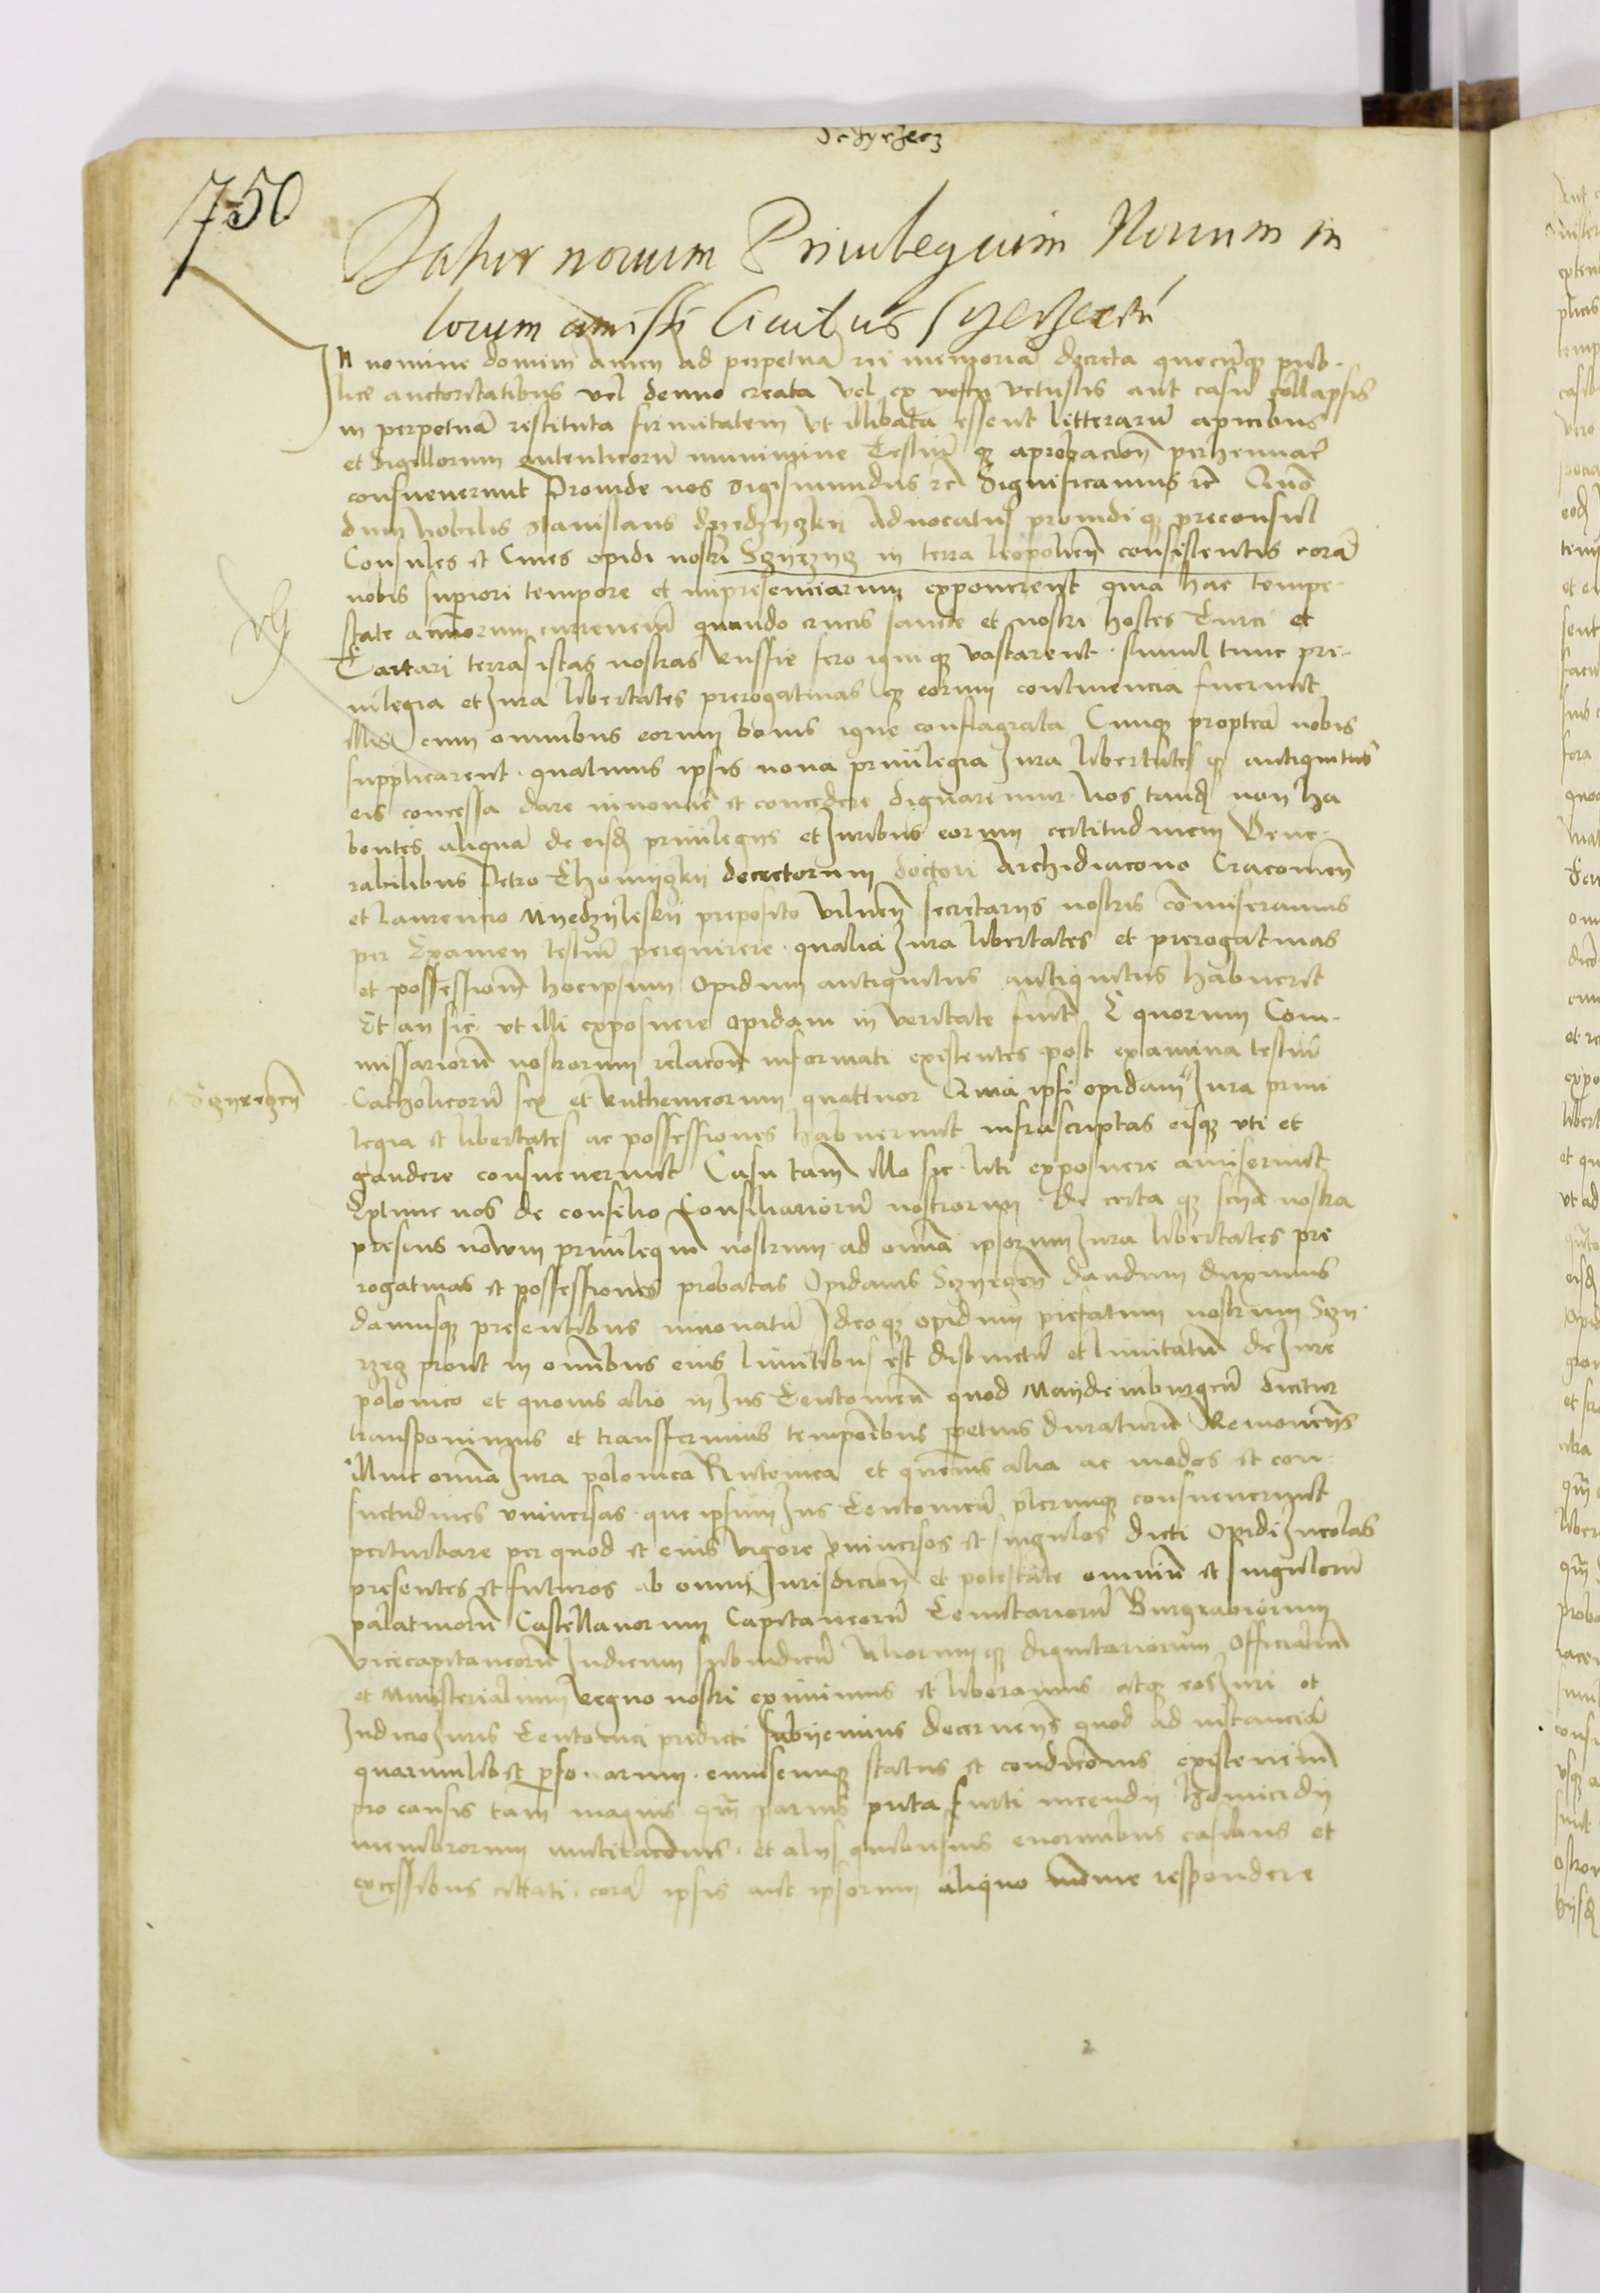 750
Datur novum Privulegium Novum in
locum amissi Civitatis Szczerzeczn̄
In nomine domini amen ad perpetuā rei memoriā decreta quecūqȝ pub-
lice auctoritatibus vel denuo creata vel ex vetustis aut casu collapsis
in perpetuā restituta firmitatem vt illibata essent litterarū apicibus
et Sigillorum autenticorū munimine Testiū qȝ aprobacion̄ perhennar̄
consueuerunt Proinde nos Sigismundus rc̄ Significamus rc̄ Quō
dum nobilis Stanislaus aduocatus prouidi qȝ preconsul
Consules et Ciues opidi nostri Sczyrzyecz in terra leopolien̄ consistentis corā
nobis superiori tempore et inpresenciarum exponerent quia hac tempe-
state annorum currenciū quando crucis sancte et nostri hostes Turci et
Tartari terras istas nostras Russie fero igni qȝ vastarent simul tunc pri-
uilegia et Jura libertates prerogatiuas qȝ eorum continencia fuerunt
illis cum omnibus eorum bonis igne conflagrata Cumqȝ propterea nobis
supplicarent quatinus ipsis noua priuilegia Jura libertates qȝ antiquitus
eis concessa dare innouare et concedere dignaremur Nos tandē non ha
bentes aliquā de eisdē priuilegijs et Juribus eorum certitudinem Vene-
rabilibus Petro Thomiczkij decretorum doctori Archidiacono Cracouien̄
et Laurencio Myedzyleskij preposito vilnen̄ secretarijs nostris cōmiseramus
per Examen testiū perquirere qualia Jura libertates et prerogatiuas
et possession̄ hocipsum Opidum antiquitus antiquitus habuerit
Et an sic vt illi exposuere opidani in veritate fuit E quorum Com-
missariorū nostrorum relacōn̄ informati existentes post examina testiū
Sczyrzeczn̄
Catholicorū sex et Ruthenicorum quattuor Quia ipsi opidani Jura priui
legia et libertates ac possessiones habuerunt infrascriptas eisqȝ vti et
gaudere consueuerunt Casu tam̄ illo sic vti exposuere amiserunt
Extunc nos de consilio Consiliariorū nostrorum de certa qȝ sciēn̄ nostra
presens nouum priuilegiū nostrum ad omnia ipsorum Jura libertates pre
rogatiuas et possessiones probatas Opidanis Sczyrzeczn̄ dandum duximus
damusqȝ presentibus innouatū Ideo qȝ opidum prefatum nostrum Sczy-
rzecz prout in omnibus eius limitibus est distinctū et limitatū de Jure
polonico et quouis alio in Jus Teutonicū quod Maydemburgeñ dicitur
transponimus et transferimus temporibus perpetuis duraturū Remouen̄s
illinc omnia Jura polonica Rutenica et queuis alia ac modos et con-
suetudines vniuersas que ipsum Jus Teutonicū plerumqȝ consueuerunt
perturbare per quod et eius vigore vniuersos et singulos dicti Opidi Incolas
presentes et futuros ab omni Jurisdicion̄ et potestate omniū et singulorū
palatinorū Castellanorum Capitaneorū Tenutariorū Burgrabiorum
Vicecapitaneorū Judicum subiudicū aliorum qȝ dignitariorum Officialiū
et Ministerialium regno nostri eximimus et liberamus atqȝ eos Juri et
Judicio Juris Teutonici predicti subijcimus decernen̄s quod ad instanciā
quarumlibet personarum cuiuscunqȝ status et condicionis existenciū
pro causis tam magnis qm̄ paruis puta furti incendij homicidij
membrorum mutilacōnis et alijs quibusuis enormibus casibus et
excessibus cittati corā ipsis aut ipsorum aliquo minime respondere